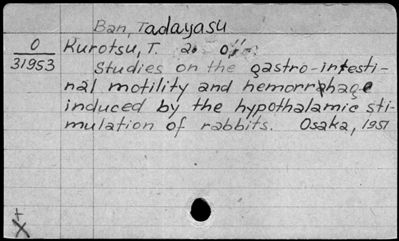 Ban, Tadayasu
O Kurotsu, T.
31953 Studies on the gastro-intesti-
nal motility and hemorrahage
induced by the hypothalamic sti-
mulation of rabbits. Osaka, 1951
+
X